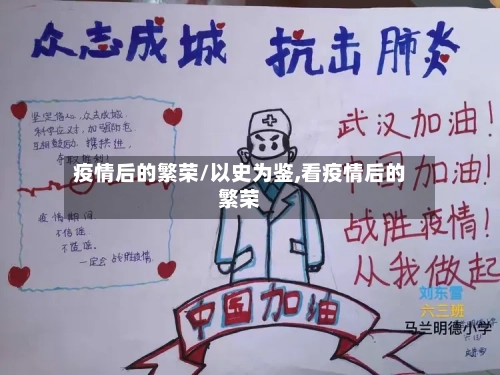 众志成城 抗击肺炎
坚定信心,众志成城
科学应对,加强防范
互相鼓励,携手共进,
夺取胜利!
疫情期间
不信谣
不造谣。
一定会战胜疫情
武汉加油!
中国加油!
战胜疫情!
从我做起
疫情后的繁荣/以史为鉴,看疫情后的
繁荣
中国加油
刘东雪
六三班
马兰明德小学